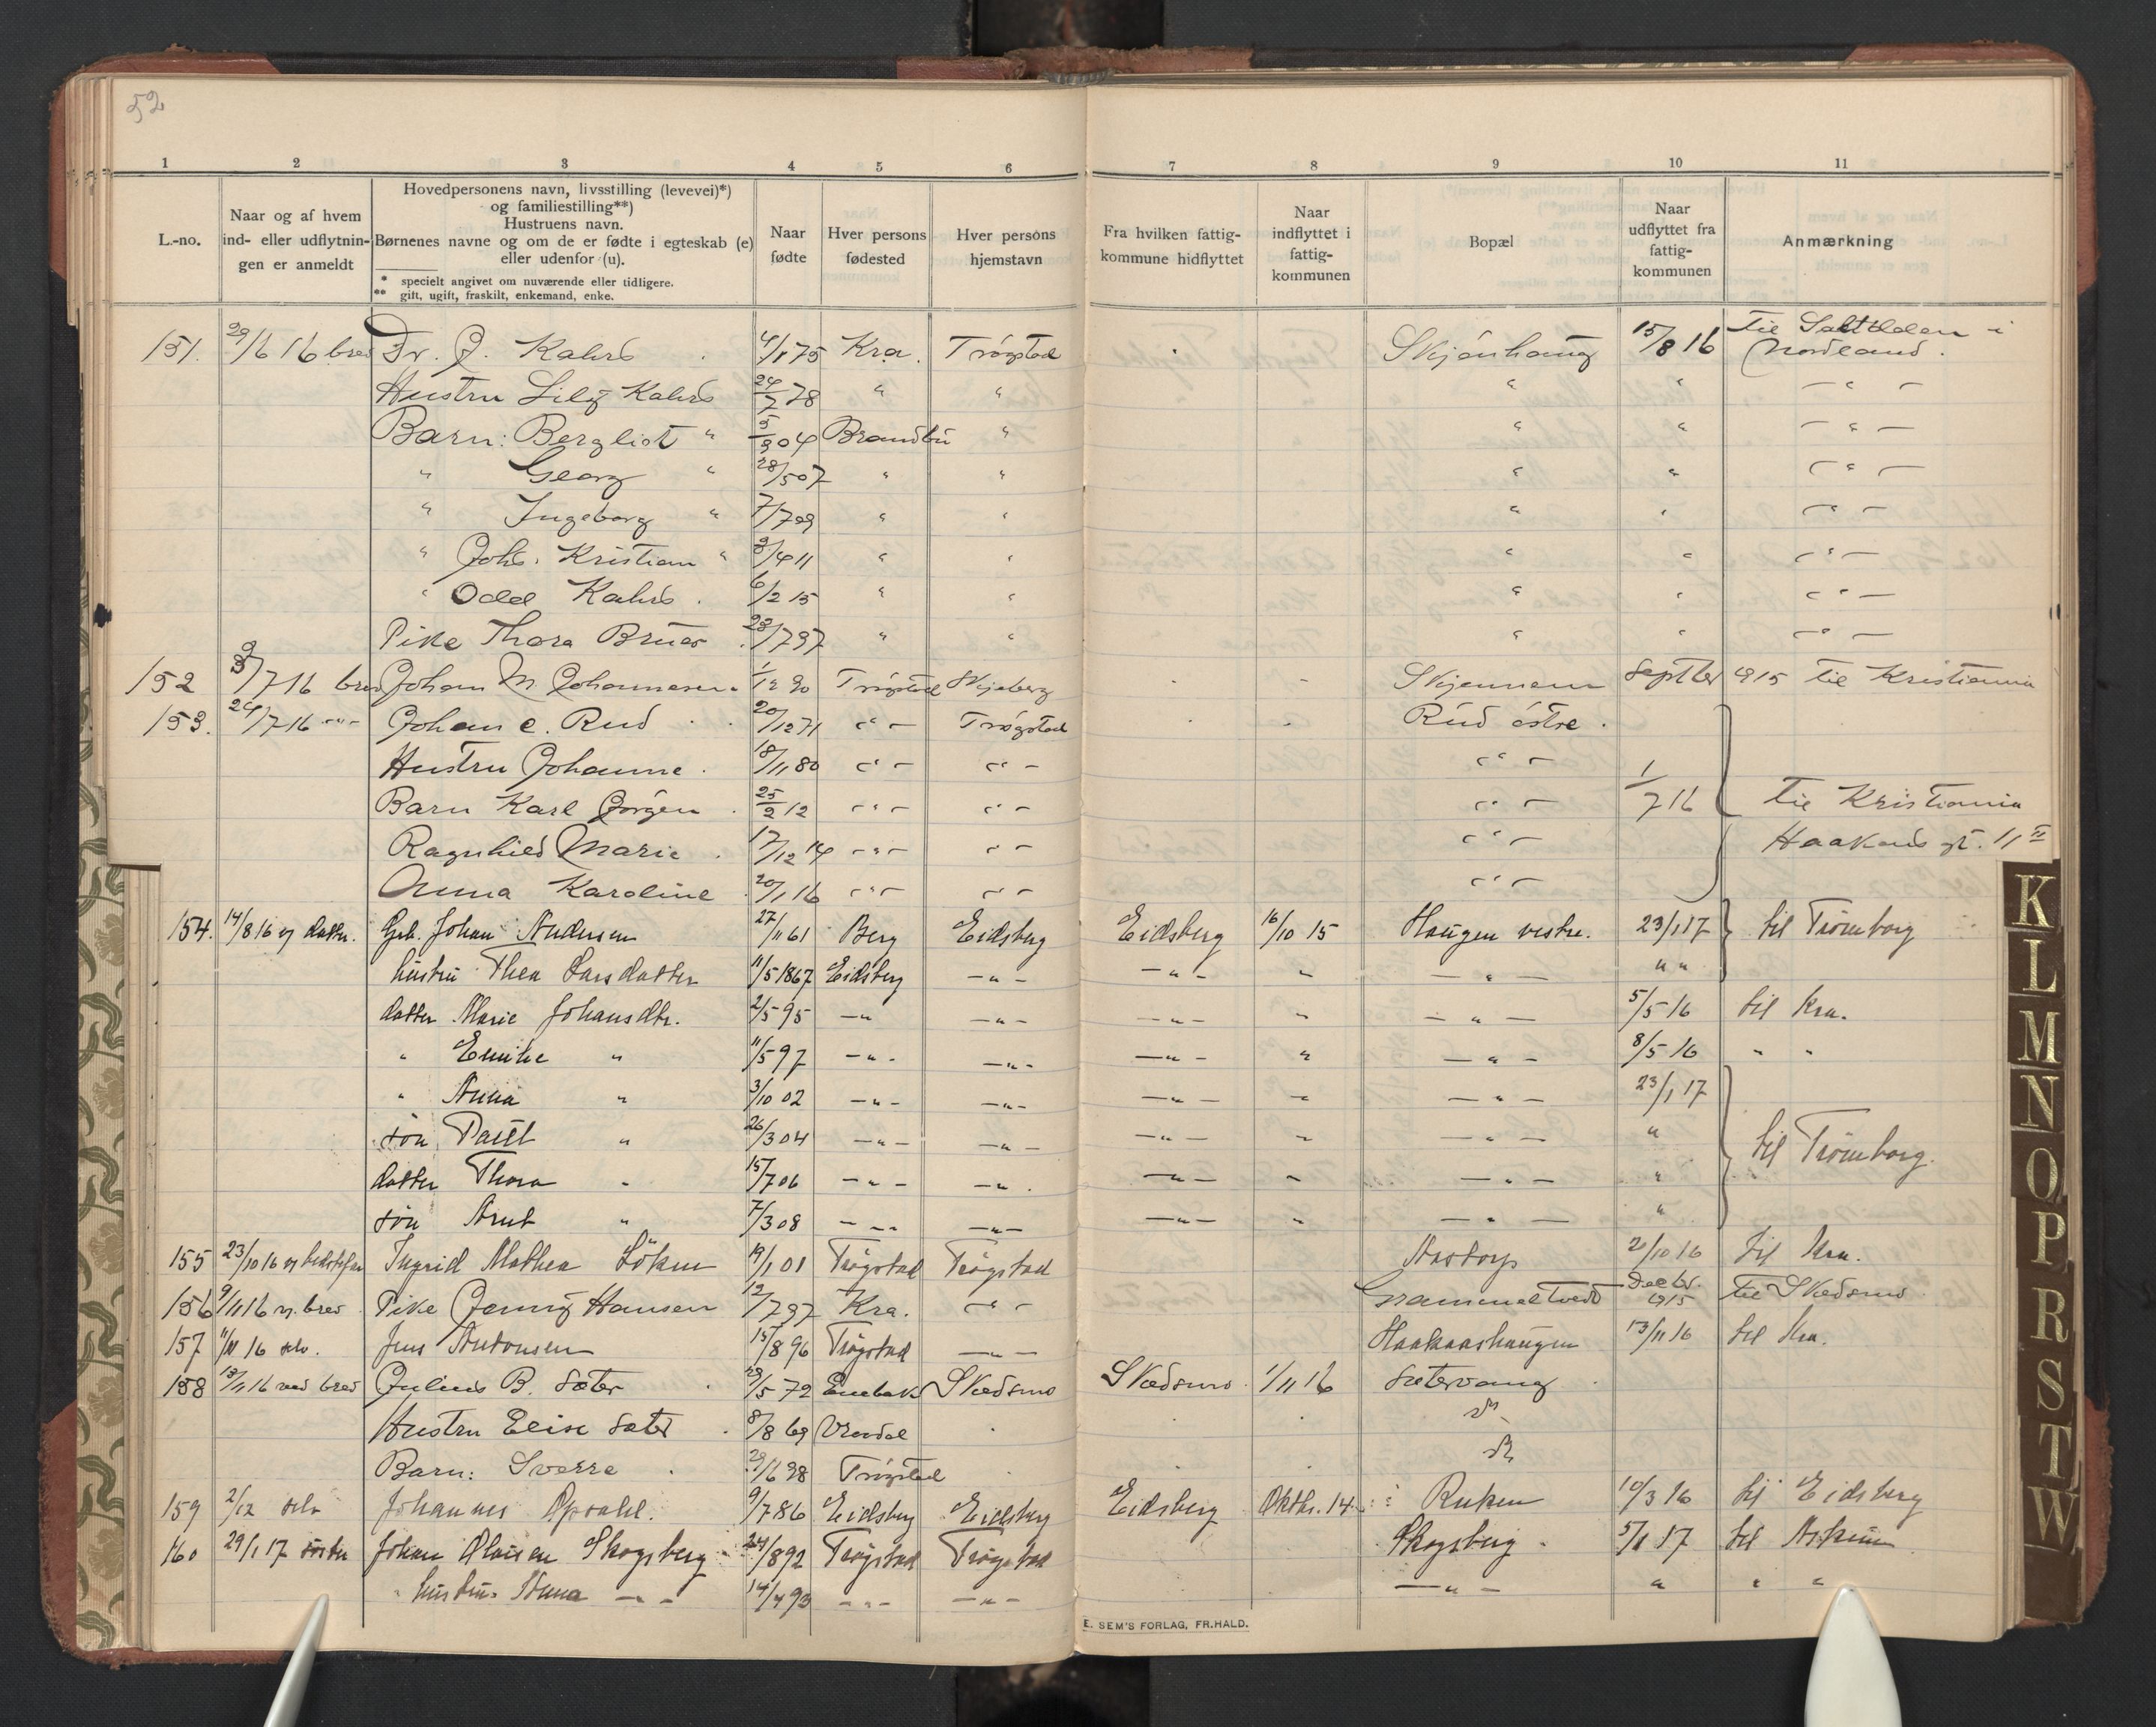 52
1 2 3 4 5 6 7 8 9 10 11
L.-no.
Naar og af hvem
ind- eller udflytnin-
gen er anmeldt
Hovedpersonens navn, livsstilling (levevei)*)
og familiestilling**)
Hustruens navn.
Børnenes navne og om de er fødte i egteskab (e)
eller udenfor (u).
* specielt angivet om nuværende eller tidligere.
** gift, ugift, fraskilt, enkemand, enke.
Naar
fødte
Hver persons
fødested
Hver persons
hjemstavn
Fra hvilken fattig-
kommune hidflyttet
Naar
indflyttet i
fattig-
kommunen
Bopæl
Naar
udflyttet fra
fattig-
kommunen
Anmærkning
151. 29/6 16 brev Dr. J. Kahrs 4/1 75 Kra. Trøgstad Skjønhaug 15/8 16 Til Saltdalen i Nordland.
Hustru Lily Kahrs 24/7 78 " " " " — " —
Barn: Bergliot " 5/9 04 Brandbu " " " — " —
" Georg " 28/5 07 " " " " — " —
" Ingeborg " 7/7 09 " " " " — " —
" Johs. Kristian " 3/4 11 " " " " — " —
" Odd Kahrs. 6/2 15 " " " " — " —
Pike Thora Bruer 23/7 97 " " " " — " —
152 3/7 16 brev Johan M. Johannesen 1/12 90 Trøgstad Skjeberg Skjennem Septbr 1915 til Kristiania
153. 24/7 16 — " — Johan C. Rud 20/12 71 — " — Trøgstad Rud østre.
Hustru Johanne. 18/11 80 — " — — " — — " —
Barn Karl Jørgen 25/2 12 — " — — " — — " — 1/7 16 til Kristiania
Ragnhild Marie 17/12 14 — " — — " — — " — Haakons gt. 11 II
Anna Karoline 20/1 16 — " — — " — — " —
154. 14/8 16 v datter. Gb. Johan Andersen 27/11 61 Berg Eidsberg Eidsberg 16/10 15 Haugen vestre. 23/1 17 til Trømborg
hustru Thea Larsdatter 11/5 1867 Eidsberg — " — — " — " — " — " "
datter Marie Johansdtr. 2/5 95 — " — " — — " — " — " — 5/5 16 til Kra.
" Emilie " 11/5 97 — " — — " — — " — " — " — 8/5 16 " "
" Anna " 3/10 02 — " — — " — — " — " — " — 23/1 17
søn Paul " 26/3 04 — " — — " — — " — " — " — " til Trømborg.
datter Thora " 15/7 06 — " — — " — — " — " — " — "
søn Arnt " 7/3 08 — " — — " — — " — " — " — "
155 23/10 16 v bedstefar Ingrid Mathea Løken 19/1 01 Trøgstad Trøgstad Aastorp 2/10 16 til Kra.
156 9/11 16 v. brev Pike Jenny Hansen 12/7 97 Kra. — " — Grammeltvedt Decbr. 1915 til Skedsmo
157 11/11 16 selv. Jens Antonsen 15/8 96 Trøgstad — " — Haakaashaugen 13/11 16 til Kra.
158 13/11 16 ved brev Julius B. Sæter 23/5 72 Enebak Skedsmo Skedsmo. 1/11 16 Sætervang
Hustru Elise Sæter 8/8 69
Barn: Sverre 29/6 98 Trøgstad
159 2/12 selv Johannes Opsahl. 9/7 86 Eidsberg Eidsberg Eidsberg Oktbr. 14. Ruken 10/3 16 til Eidsberg
160 29/1 17 søster Johan Olausen Skogsberg 24/8 92 Trøgstad Trøgstad Skogsberg. 5/1 17 til Askim
" hustru Anna — " — 14/4 93 — " — — " — — " — " " "
E. SEM'S FORLAG, FR.HALD.
K
L
M
N
O
P
R
S
T
W